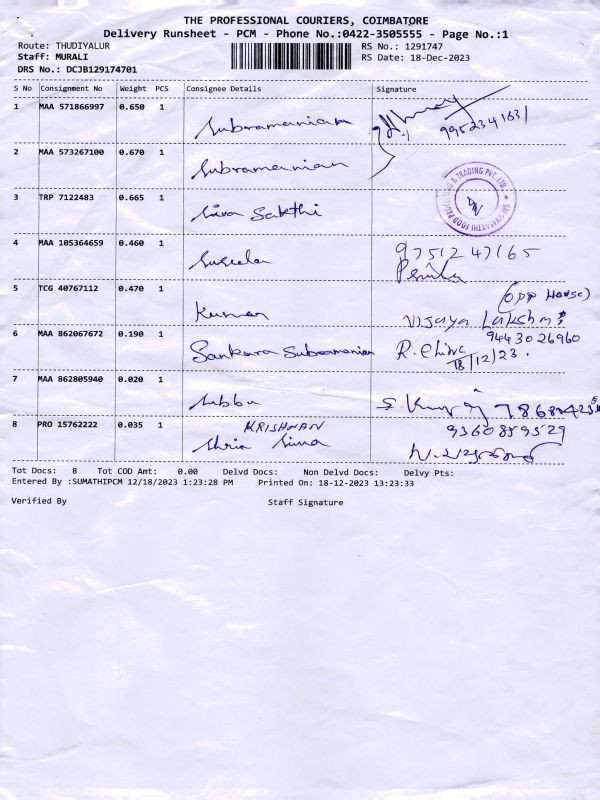 THE PROFESSIONAL COURIERS, COIMBATORE
Delivery Runsheet - PCM - Phone No.:0422-3505555 - Page No.:1
Route: THUDIYALUR RS No.: 1291747
Staff: MURALI RS Date: 18-Dec-2023
DRS No.: DCJB129174701
S No Consignment No Weight PCS Consignee Details Signature
1 MAA 571866997 0.650 1 Subramaniam
2 MAA 573267100 0.670 1 Subramanian
3 TRP 7122483 0.665 1 Siva Sakthi
4 MAA 105364659 0.460 1 Suseela 9751247165
5 TCG 40767112 0.470 1 Kumar (OPP House)
Vijaya Lakshmi
6 MAA 862067672 0.190 1 Sankara Subramanian R. Chitra 9443026960
18/12/23.
7 MAA 862805940 0.020 1 Subbu
8 PRO 15762222 0.035 1 KRISHNAN 9360859529
Shria
Tot Docs: 8 Tot COD Amt: 0.00 Delvd Docs: Non Delvd Docs: Delvy Pts:
Entered By :SUMATHIPCM 12/18/2023 1:23:28 PM Printed On: 18-12-2023 13:23:33
Verified By Staff Signature